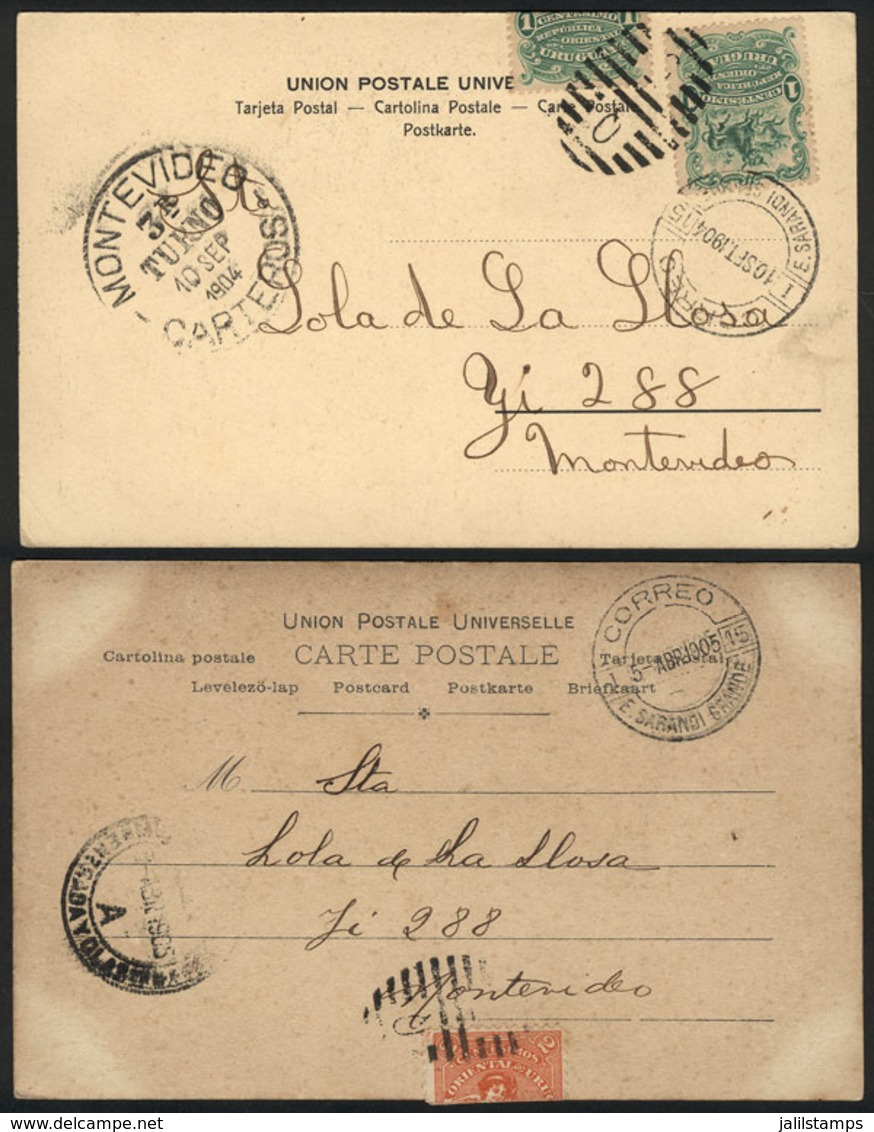 1 CENTESIMO 1
REPÚBLICA
ORIENTAL
URUGUAY
1 CENTESIMO
REPÚBLICA
ORIENTAL
URUGUAY
UNION POSTALE UNIVE
Tarjeta Postal — Cartolina Postale — Carte Postale
Postkarte.
MONTEVIDEO
3er
TURNO
10 SEP
1904
CARTEROS
CORREO
10.SET.1904
15
E. SARANDI
Lola de La Llosa
Yi 288
Montevideo
UNION POSTALE UNIVERSELLE
Cartolina postale CARTE POSTALE Tarjeta postal
Levelező-lap Postcard Postkarte Briefkaart
CORREO
5-ABR.1905
15
E. SARANDI GRANDE
M Sta
Lola de La Llosa
Yi 288
A
ABR 1905
Montevideo
2
ORIENTAL DEL URU
delcampe.net
jalilstamps